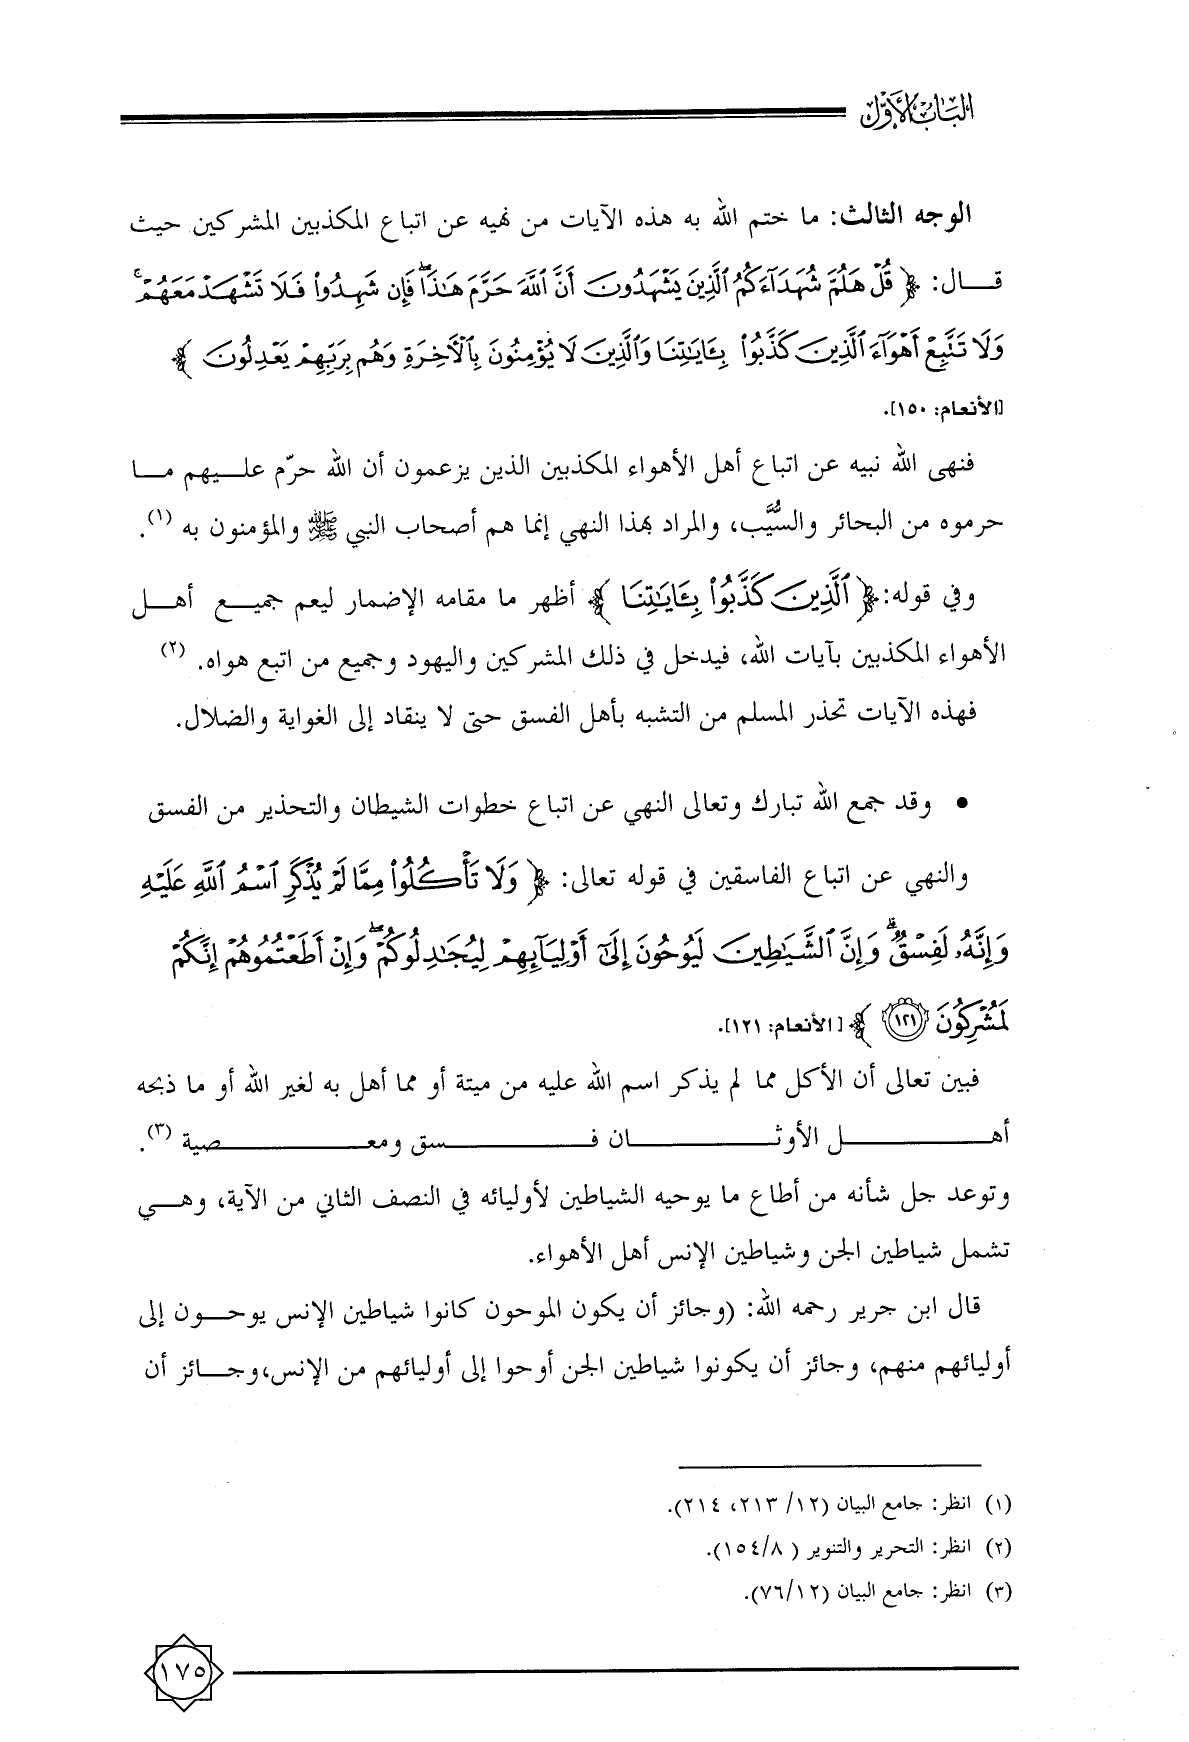 الباب الأول
الوجه الثالث: ما ختم الله به هذه الآيات من نهيه عن اتباع المكذبين المشركين حيث
قـــال: ﴿ قُلْ هَلُمَّ شُهَدَآءَكُمُ ٱلَّذِينَ يَشْهَدُونَ أَنَّ ٱللَّهَ حَرَّمَ هَٰذَاۖ فَإِن شَهِدُوا۟ فَلَا تَشْهَدْ مَعَهُمْۚ
وَلَا تَتَّبِعْ أَهْوَآءَ ٱلَّذِينَ كَذَّبُوا۟ بِـَٔايَٰتِنَا وَٱلَّذِينَ لَا يُؤْمِنُونَ بِٱلْأَخِرَةِ وَهُم بِرَبِّهِمْ يَعْدِلُونَ ﴾
[الأنعام: ١٥٠].
فنهى الله نبيه عن اتباع أهل الأهواء المكذبين الذين يزعمون أن الله حرّم علـــيهم مـــا
حرموه من البحائر والسُّيَّب، والمراد بهذا النهي إنما هم أصحاب النبي ﷺ والمؤمنون به (١).
وفي قوله:﴿ ٱلَّذِينَ كَذَّبُوا۟ بِـَٔايَٰتِنَا ﴾ أظهر ما مقامه الإضمار ليعم جميـــع أهـــل
الأهواء المكذبين بآيات الله، فيدخل في ذلك المشركين واليهود وجميع من اتبع هواه. (٢)
فهذه الآيات تحذر المسلم من التشبه بأهل الفسق حتى لا ينقاد إلى الغواية والضلال.
• وقد جمع الله تبارك وتعالى النهي عن اتباع خطوات الشيطان والتحذير من الفسق
والنهي عن اتباع الفاسقين في قوله تعالى: ﴿ وَلَا تَأْكُلُوا۟ مِمَّا لَمْ يُذْكَرِ ٱسْمُ ٱللَّهِ عَلَيْهِ
وَإِنَّهُۥ لَفِسْقٌۗ وَإِنَّ ٱلشَّيَٰطِينَ لَيُوحُونَ إِلَىٰٓ أَوْلِيَآئِهِمْ لِيُجَٰدِلُوكُمْۖ وَإِنْ أَطَعْتُمُوهُمْ إِنَّكُمْ
لَمُشْرِكُونَ ١٢١ ﴾ [الأنعام: ١٢١].
فبين تعالى أن الأكل مما لم يذكر اسم الله عليه من ميتة أو مما أهل به لغير الله أو ما ذبحه
أهـــــل الأوثـــــان فـــــسق ومعـــــصية (٣).
وتوعد جل شأنه من أطاع ما يوحيه الشياطين لأوليائه في النصف الثاني من الآية، وهـــي
تشمل شياطين الجن وشياطين الإنس أهل الأهواء.
قال ابن جرير رحمه الله: (وجائز أن يكون الموحون كانوا شياطين الإنس يوحـــون إلى
أوليائهم منهم، وجائز أن يكونوا شياطين الجن أوحوا إلى أوليائهم من الإنس،وجـــائز أن
(١) انظر: جامع البيان (١٢/ ٢١٣، ٢١٤).
(٢) انظر: التحرير والتنوير ( ١٥٤/٨).
(٣) انظر: جامع البيان (٧٦/١٢).
١٧٥